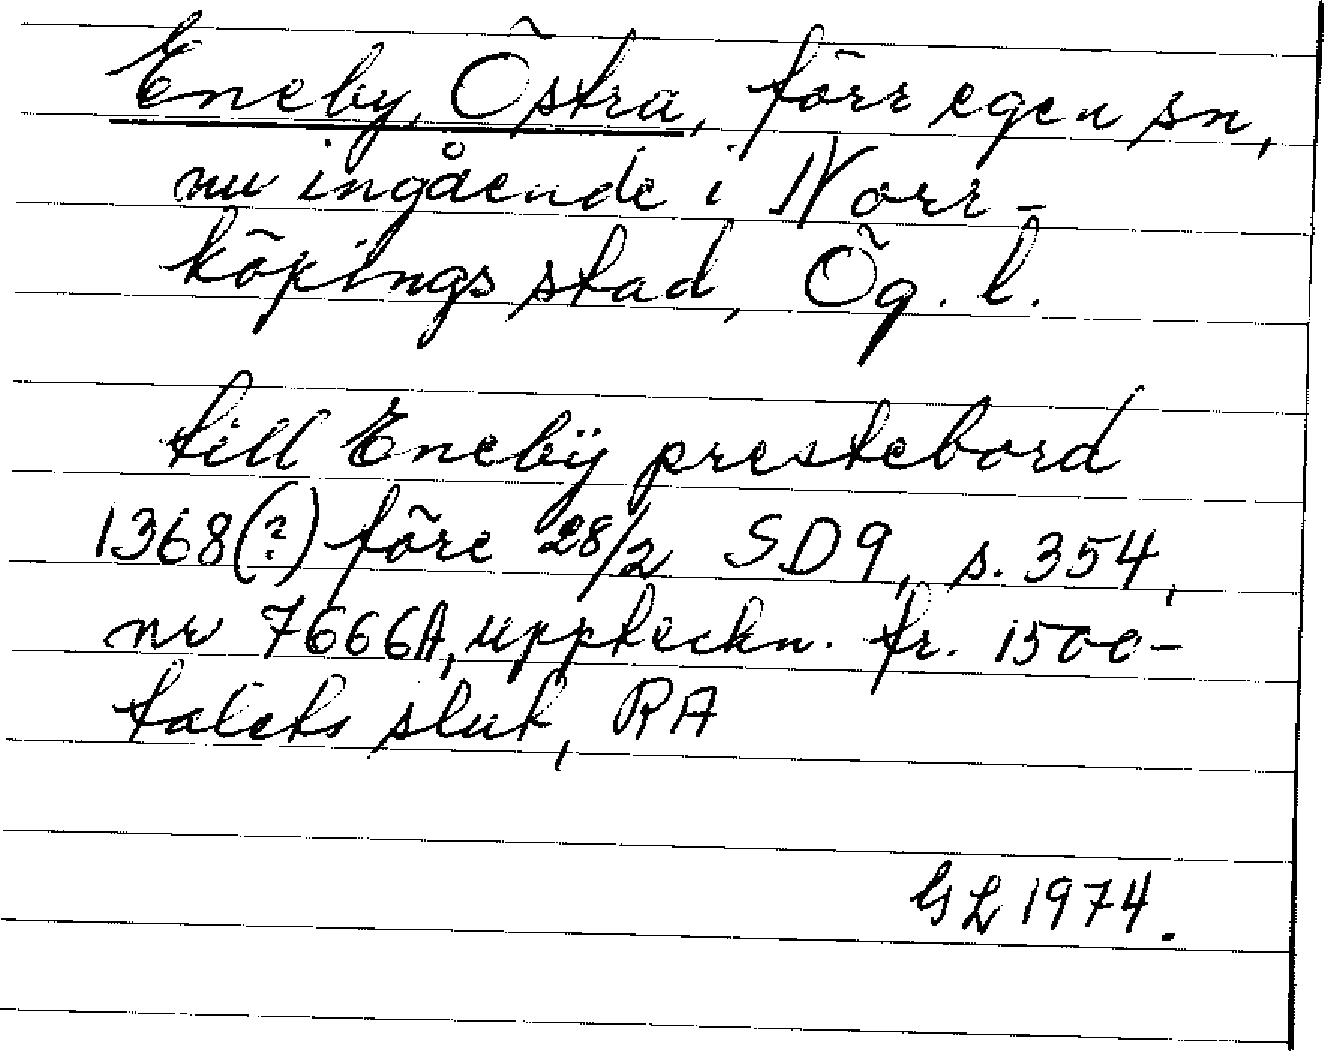 Eneby, Östra, förr egen sn,
nu ingående i Norr-
köpings stad, Ög. l.
till Enebÿ prestebord
1368(?) före 28/2 SD9, s. 354,
nr 7666A, uppteckn. fr. 1500-
talets slut, RA
GL 1974.